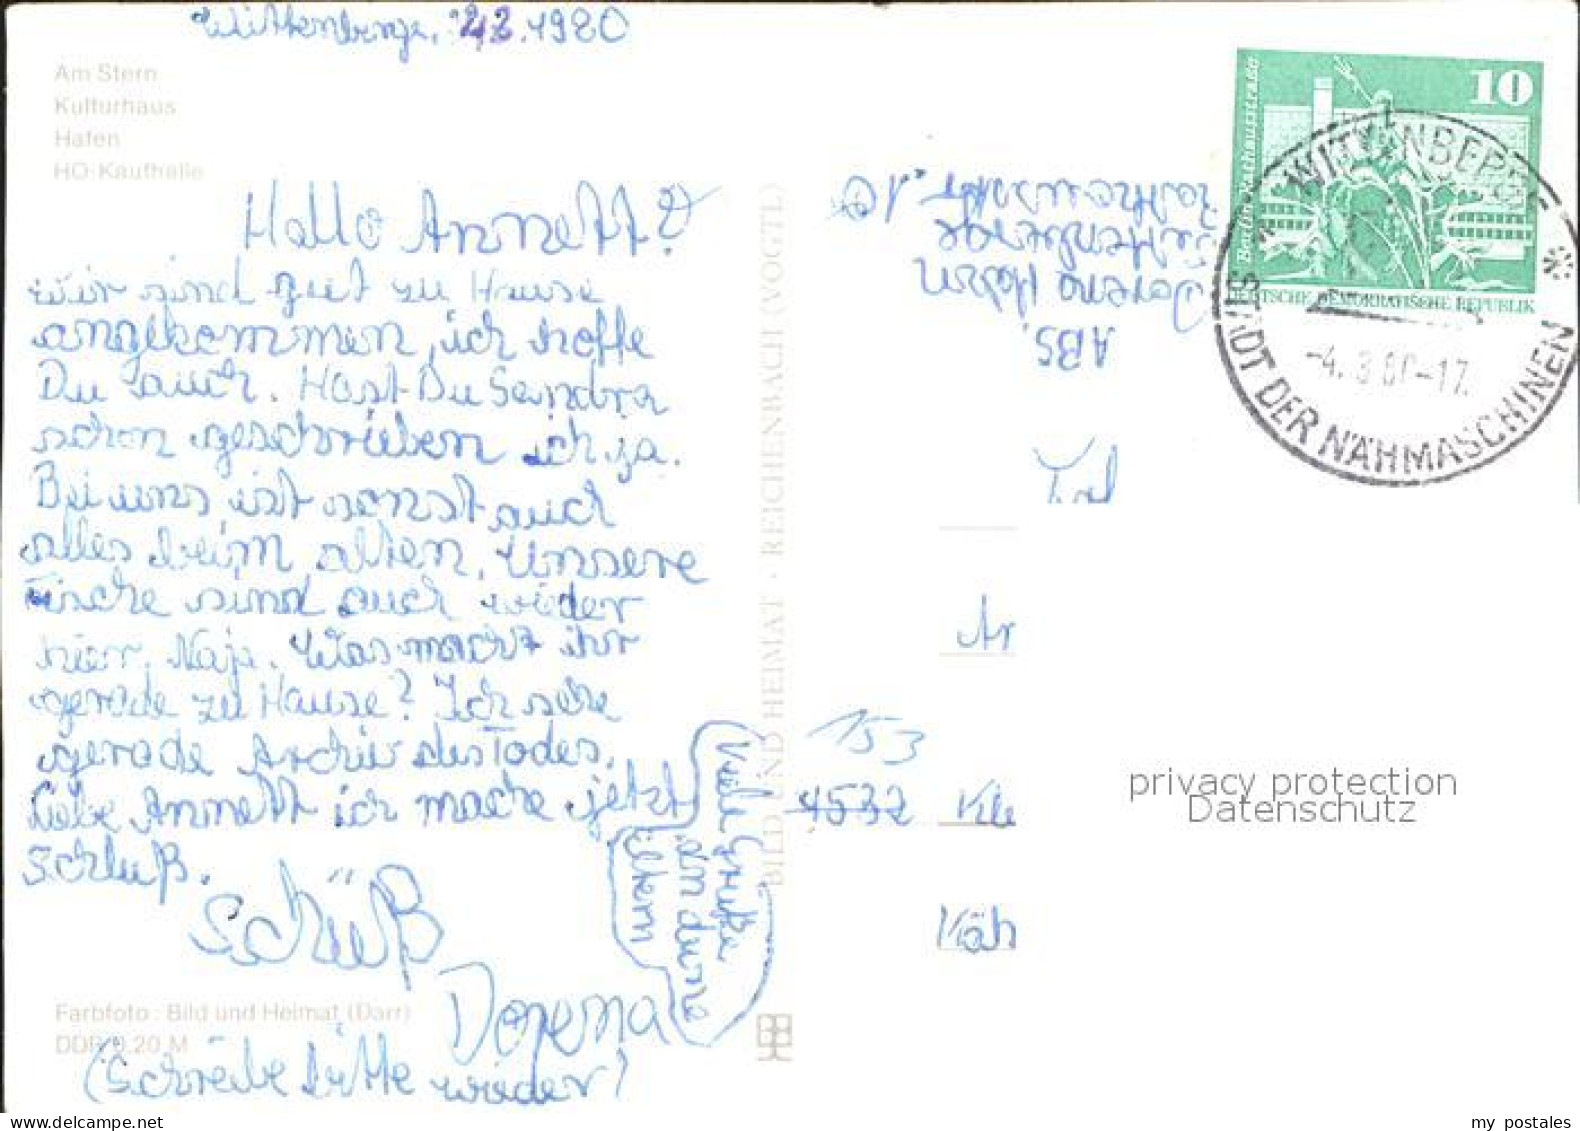 Wittenberge, 2.3.1980
Am Stern
Kulturhaus
Hafen
HO-Kaufhalle
Hallo Annett!
Wir sind gut zu Hause
angekommen, ich hoffe
Du auch. Hast Du Sandra
schon geschrieben ich ja.
Bei uns ist sonst auch
alles beim alten. Unsere
Fische sind auch wieder
hier. Naja. Was macht ihr
gerade zu Hause? Ich sehe
gerade Archiv des Todes.
Liebe Annett ich mache jetzt
Schluß.
Schüß
Dorena
(Schreibe bitte wieder)
Viele Grüße
an deine
Eltern
Farbfoto: Bild und Heimat (Darr)
DDR 0,20 M
BILD UND HEIMAT · REICHENBACH (VOGTL)
ABS.
Dorena
Wittenberge
Rathausstr. 10
Frl
An
153
4532 Kle
Käh
10
Berlin, Rathausstraße
DEUTSCHE DEMOKRATISCHE REPUBLIK
WITTENBERGE
STADT DER NÄHMASCHINEN
-4.3.80-17
privacy protection
Datenschutz
www.delcampe.net
my postales